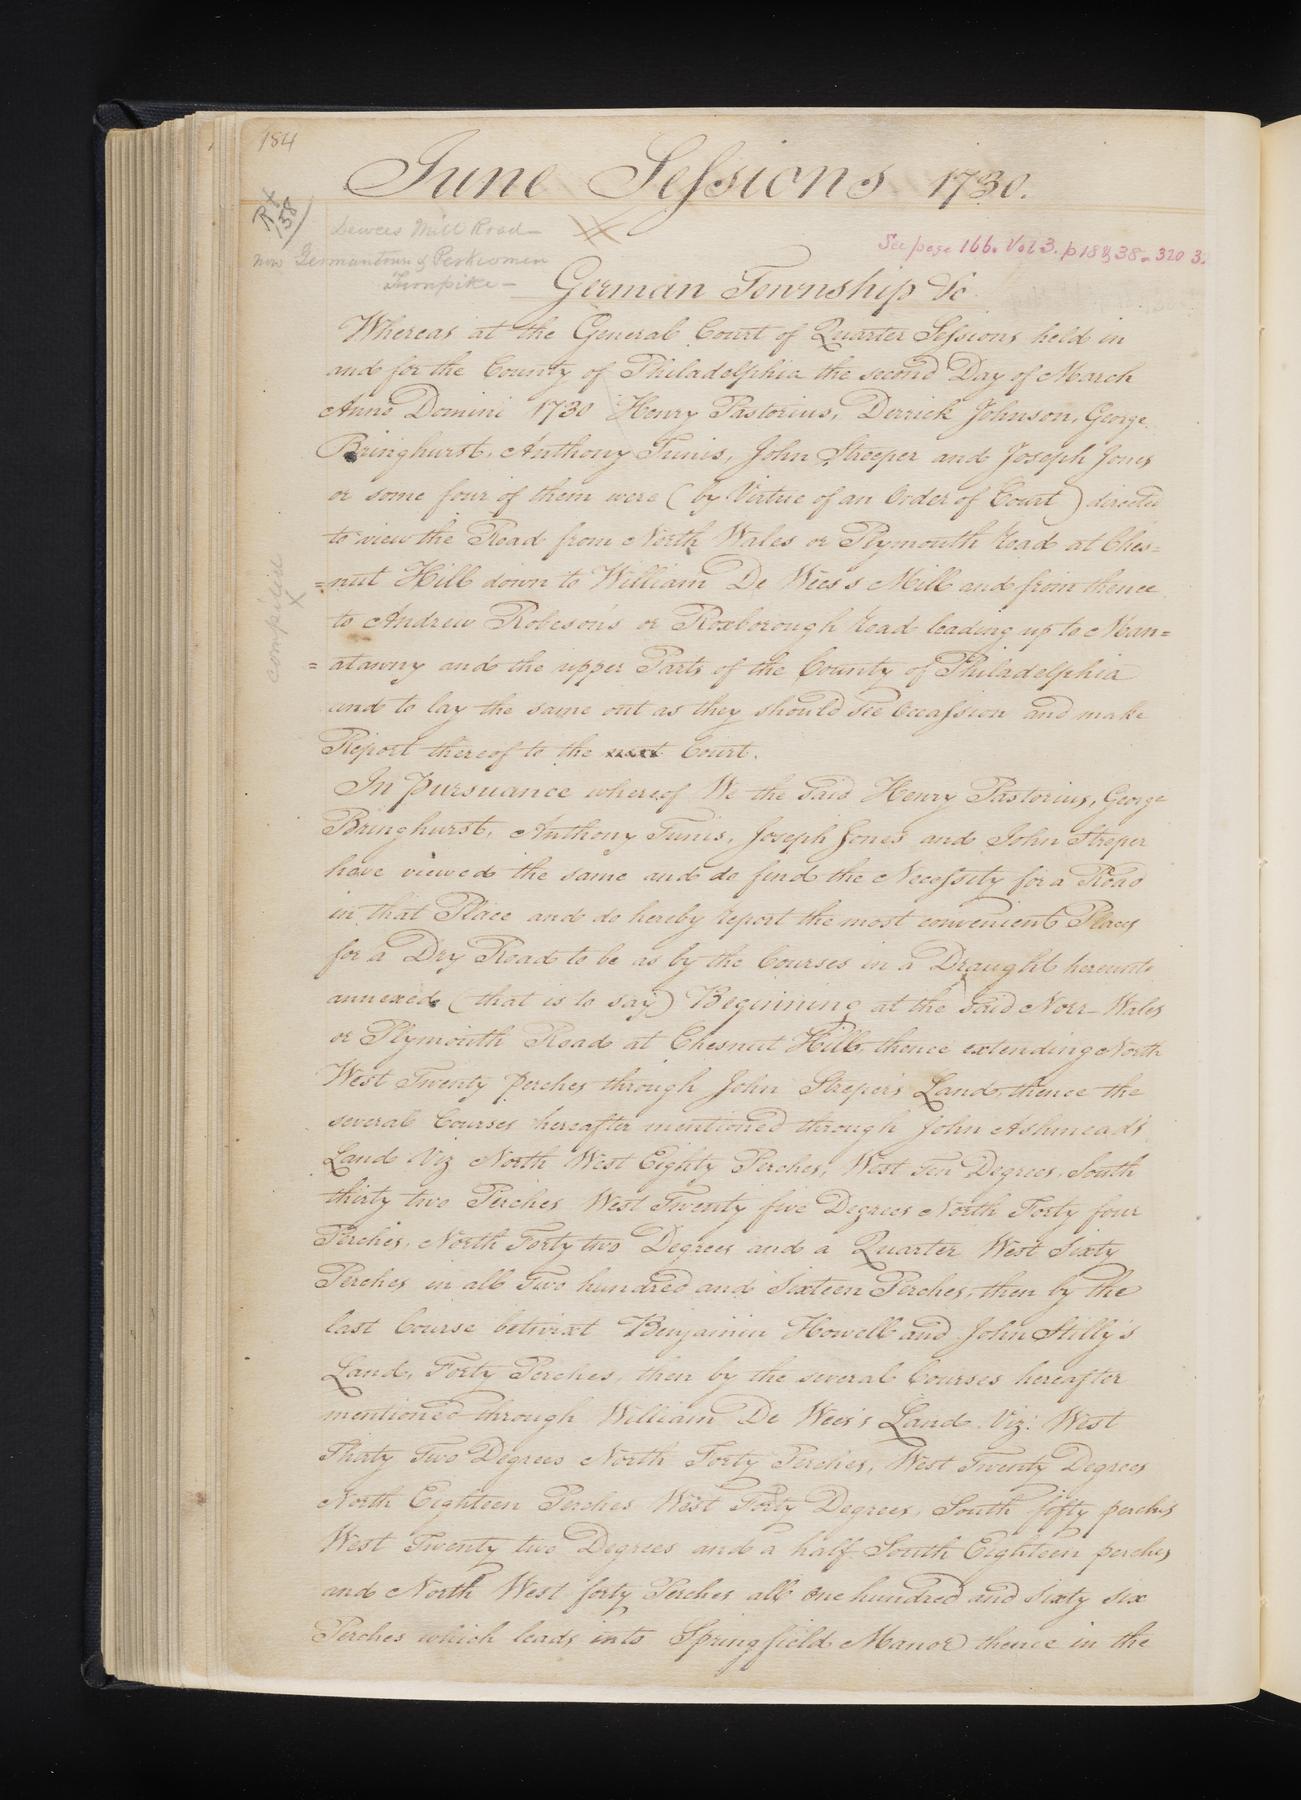 184
June Sessions 1730.
RX
158
Dewees Mill Road—
now Germantown & Perkiomen
Turnpike—
See page 166. Vol 3. p 18 & 38 - 320
German Township Sc
Whereas at the General Court of Quarter Sessions held in
and for the County of Philadelphia the second Day of March
Anno Domini 1730 Henry Pastorius, Derrick Johnson, George
Bringhurst, Anthony Tunis, John Streeper and Joseph Jones
or some four of them were (by Virtue of an Order of Court) directed
to view the Road from North Wales or Plymouth Road at Ches=
=nut Hill down to William De Wees's Mill and from thence
to Andrew Robeson's or Roxborough Road leading up to Man=
=atawny and the upper Parts of the County of Philadelphia
and to lay the same out as they should see Occassion and make
Report thereof to the next Court.
compiled
X
In pursuance whereof We the said Henry Pastorius, George
Bringhurst, Anthony Tunis, Joseph Jones and John Streper
have viewed the same and do find the Necessity for a Road
in that Place and do hereby report the most convenient Places
for a Dry Road to be as by the Courses in a Draught hereunto
annexed (that is to say) Beginning at the said Norr-Wales
or Plymouth Road at Chesnut Hill, thence extending North
West Twenty Perches through John Streper's Land, thence the
several Courses hereafter mentioned through John Ashmead's
Land Viz North West Eighty Perches, West Ten Degrees, South
thirty two Perches West Twenty five Degrees North Forty four
Perches, North Forty two Degrees and a Quarter West Sixty
Perches in all Two hundred and Sixteen Perches, then by the
last Course betwixt Benjamin Howell and John Stilly's
Land, Forty Perches, then by the several Courses hereafter
mentioned through William De Wees's Land Viz: West
Thirty Two Degrees North Forty Perches, West Twenty Degrees
North Eighteen Perches West Forty Degrees, South fifty perches
West Twenty two Degrees and a half South Eighteen perches
and North West forty Perches all One hundred and Sixty six
Perches which leads into Springfield Manor thence in the